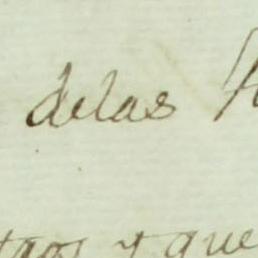 delas
y que